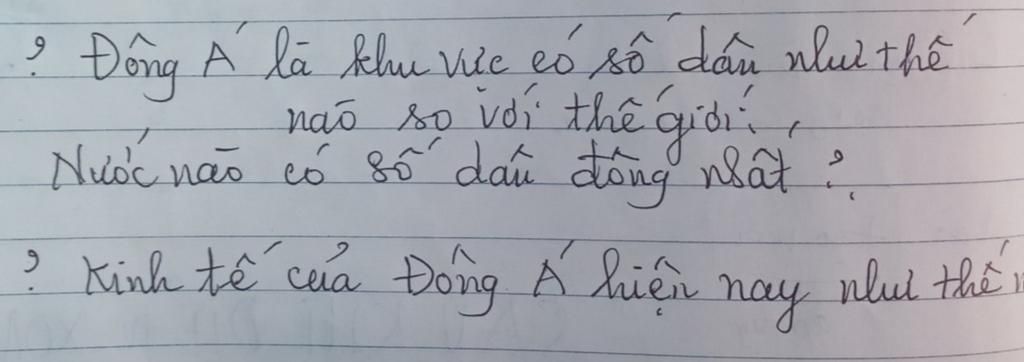 ? Đông Á là khu vực có số dân như thế
nào so với thế giới.,
Nước nào có số dân đông nhất ?.
? Kinh tế của Đông Á hiện nay như thế